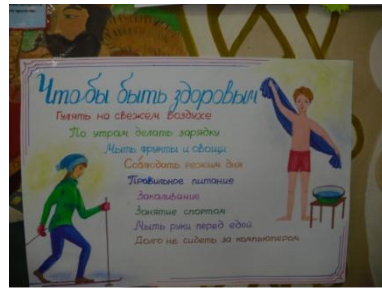 Чтобы быть здоровым
Гулять на свежем воздухе
По утрам делать зарядки
Мыть фрукты и овощи
Соблюдать режим дня
Правильное питание
Закаливание
Занятие спортом
Мыть руки перед едой
Долго не сидеть за компьютером